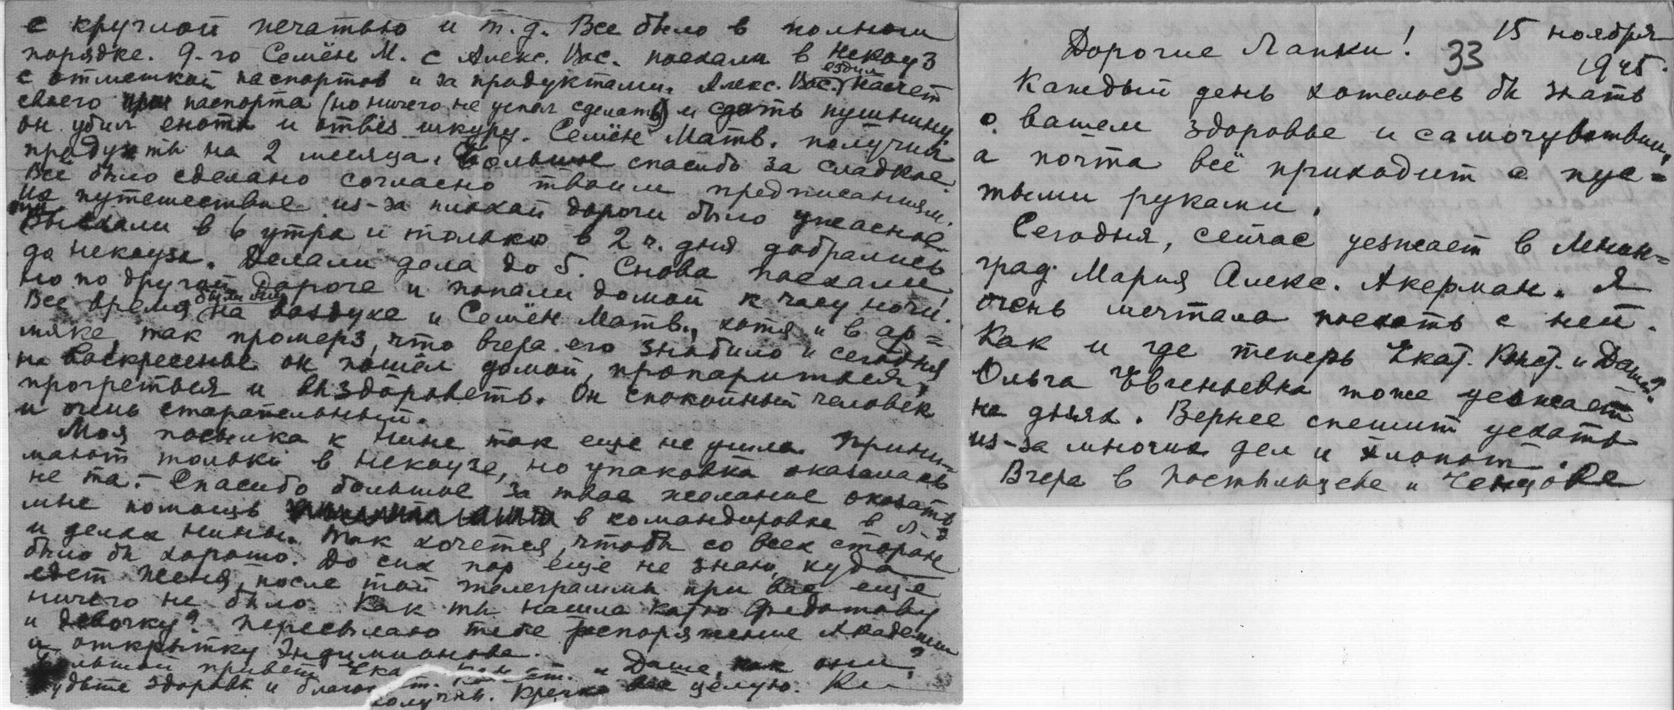 с круглой печатью и т.д. Все было в полном
порядке. 9-го Семён М. с Алекс. Вас. поехали в Некоуз
с отметкой паспортов и за продуктами. Алекс. Вас. ездил насчет
своего паспорта (но ничего не успел сделать) и сдать пушнину
он убил енота и отвёз шкуру. Семён Матв. получил
продукты на 2 месяца. Большое спасибо за сладкое.
Все было сделано согласно твоим предписаниям.
Но путешествие из-за плохой дороги было ужасное
Выехали в 6 утра и только в 2 ч. дня добрались
до Некоуза. Делали дела до 5. Снова поехали
но по другой дороге и попали домой к часу ночи!
Все время были на воздухе и Семён Матв., хотя и в ар=
мяке, так промерз, что вчера его знобило и сегодня
на воскресенье он пошел домой, пропариться,
прогреться и выздороветь. Он спокойный человек
и очень старательный.
Моя посылка к Нине так еще не ушла. Прини-
мают только в Некоузе, но упаковка оказалась
не та. Спасибо большое за твое желание оказать
мне помощь в командировке в Л-д
и делах Нины. Так хочется, чтобы со всех сторон
было бы хорошо. До сих пор еще не знаю, куда
едет Женя, после той телеграммы при вас еще
ничего не было. Как ты нашла Катю Федотову
и девочку? Пересылаю тебе распоряжение Академии
и открытку Эндимионова.
Большой привет Екат. Конст. и Даше, как они?
Будьте здоровы и благополучны. Крепко все целую.
Дорогие Лапки! 33 15 ноября
1945.
Каждый день хотелось бы знать
о вашем здоровье и самочувствии,
а почта всё приходит с пус=
тыми руками.
Сегодня, сейчас уезжает в Ленин=
град Мария Алекс. Акерман. Я
очень мечтала поехать с ней.
Как и где теперь Екат. Конст. и Даша?
Ольга Евгеньевна тоже уезжает
на днях. Вернее спешит уехать
из-за многих дел и хлопот.
Вчера в и